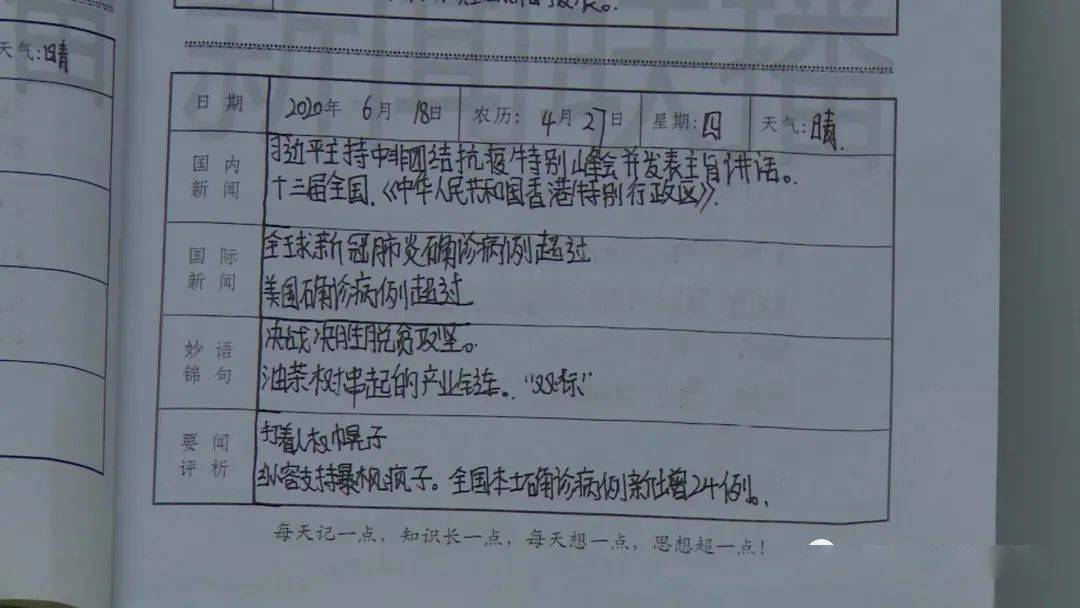 天气:晴
新闻联播
日期 2020年 6月 18日 农历: 4月27日 星期:四 天气:晴
国内新闻
习近平主持中非团结抗疫特别峰会并发表主旨讲话。
十三届全国.《中华人民共和国香港特别行政区》.
国际新闻
全球新冠肺炎确诊病例超过
美国确诊病例超过
妙语锦句
决战决胜脱贫攻坚。
油茶树串起的产业链。“双标”
要闻评析
打着人权幌子
纵容支持暴力疯子。全国本土确诊病例新增24例。
每天记一点，知识长一点，每天想一点，思想超一点！